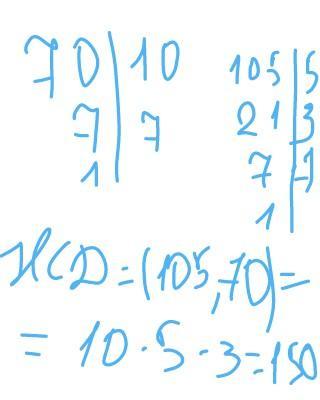 70 | 10
7 | 7
1 |
105 | 5
21 | 3
7 | 7
1 |
НСД = (105, 70) =
= 10 · 5 · 3 = 150